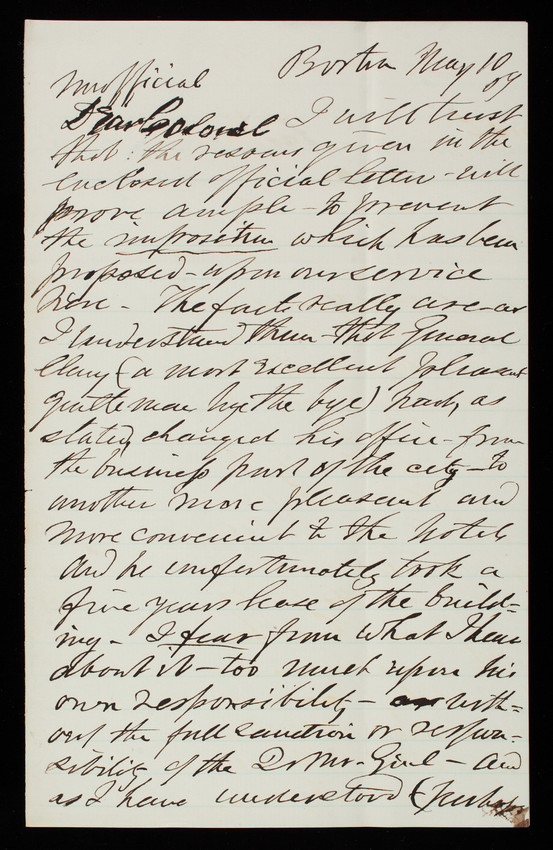 Boston May 10
unofficial
Dear Colonel I will trust
that the reasons given in the
enclosed official letter - will
prove ample - to prevent
the imposition which has been
proposed - upon our service
here - The facts really are - as
I understand them - that General
(a most excellent pleasant
gentleman bye the bye) had, as
stated, changed his office - from
the business part of the city - to
another more pleasant and
more convenient to the hotels
and he unfortunately took a
five years lease of the build=
ing - I fear from what I hear
about it - too much upon his
own responsibility - with=
out the full sanction or respon-
sibility of the Qr Mr - Genl - and
as I have understood (perhaps